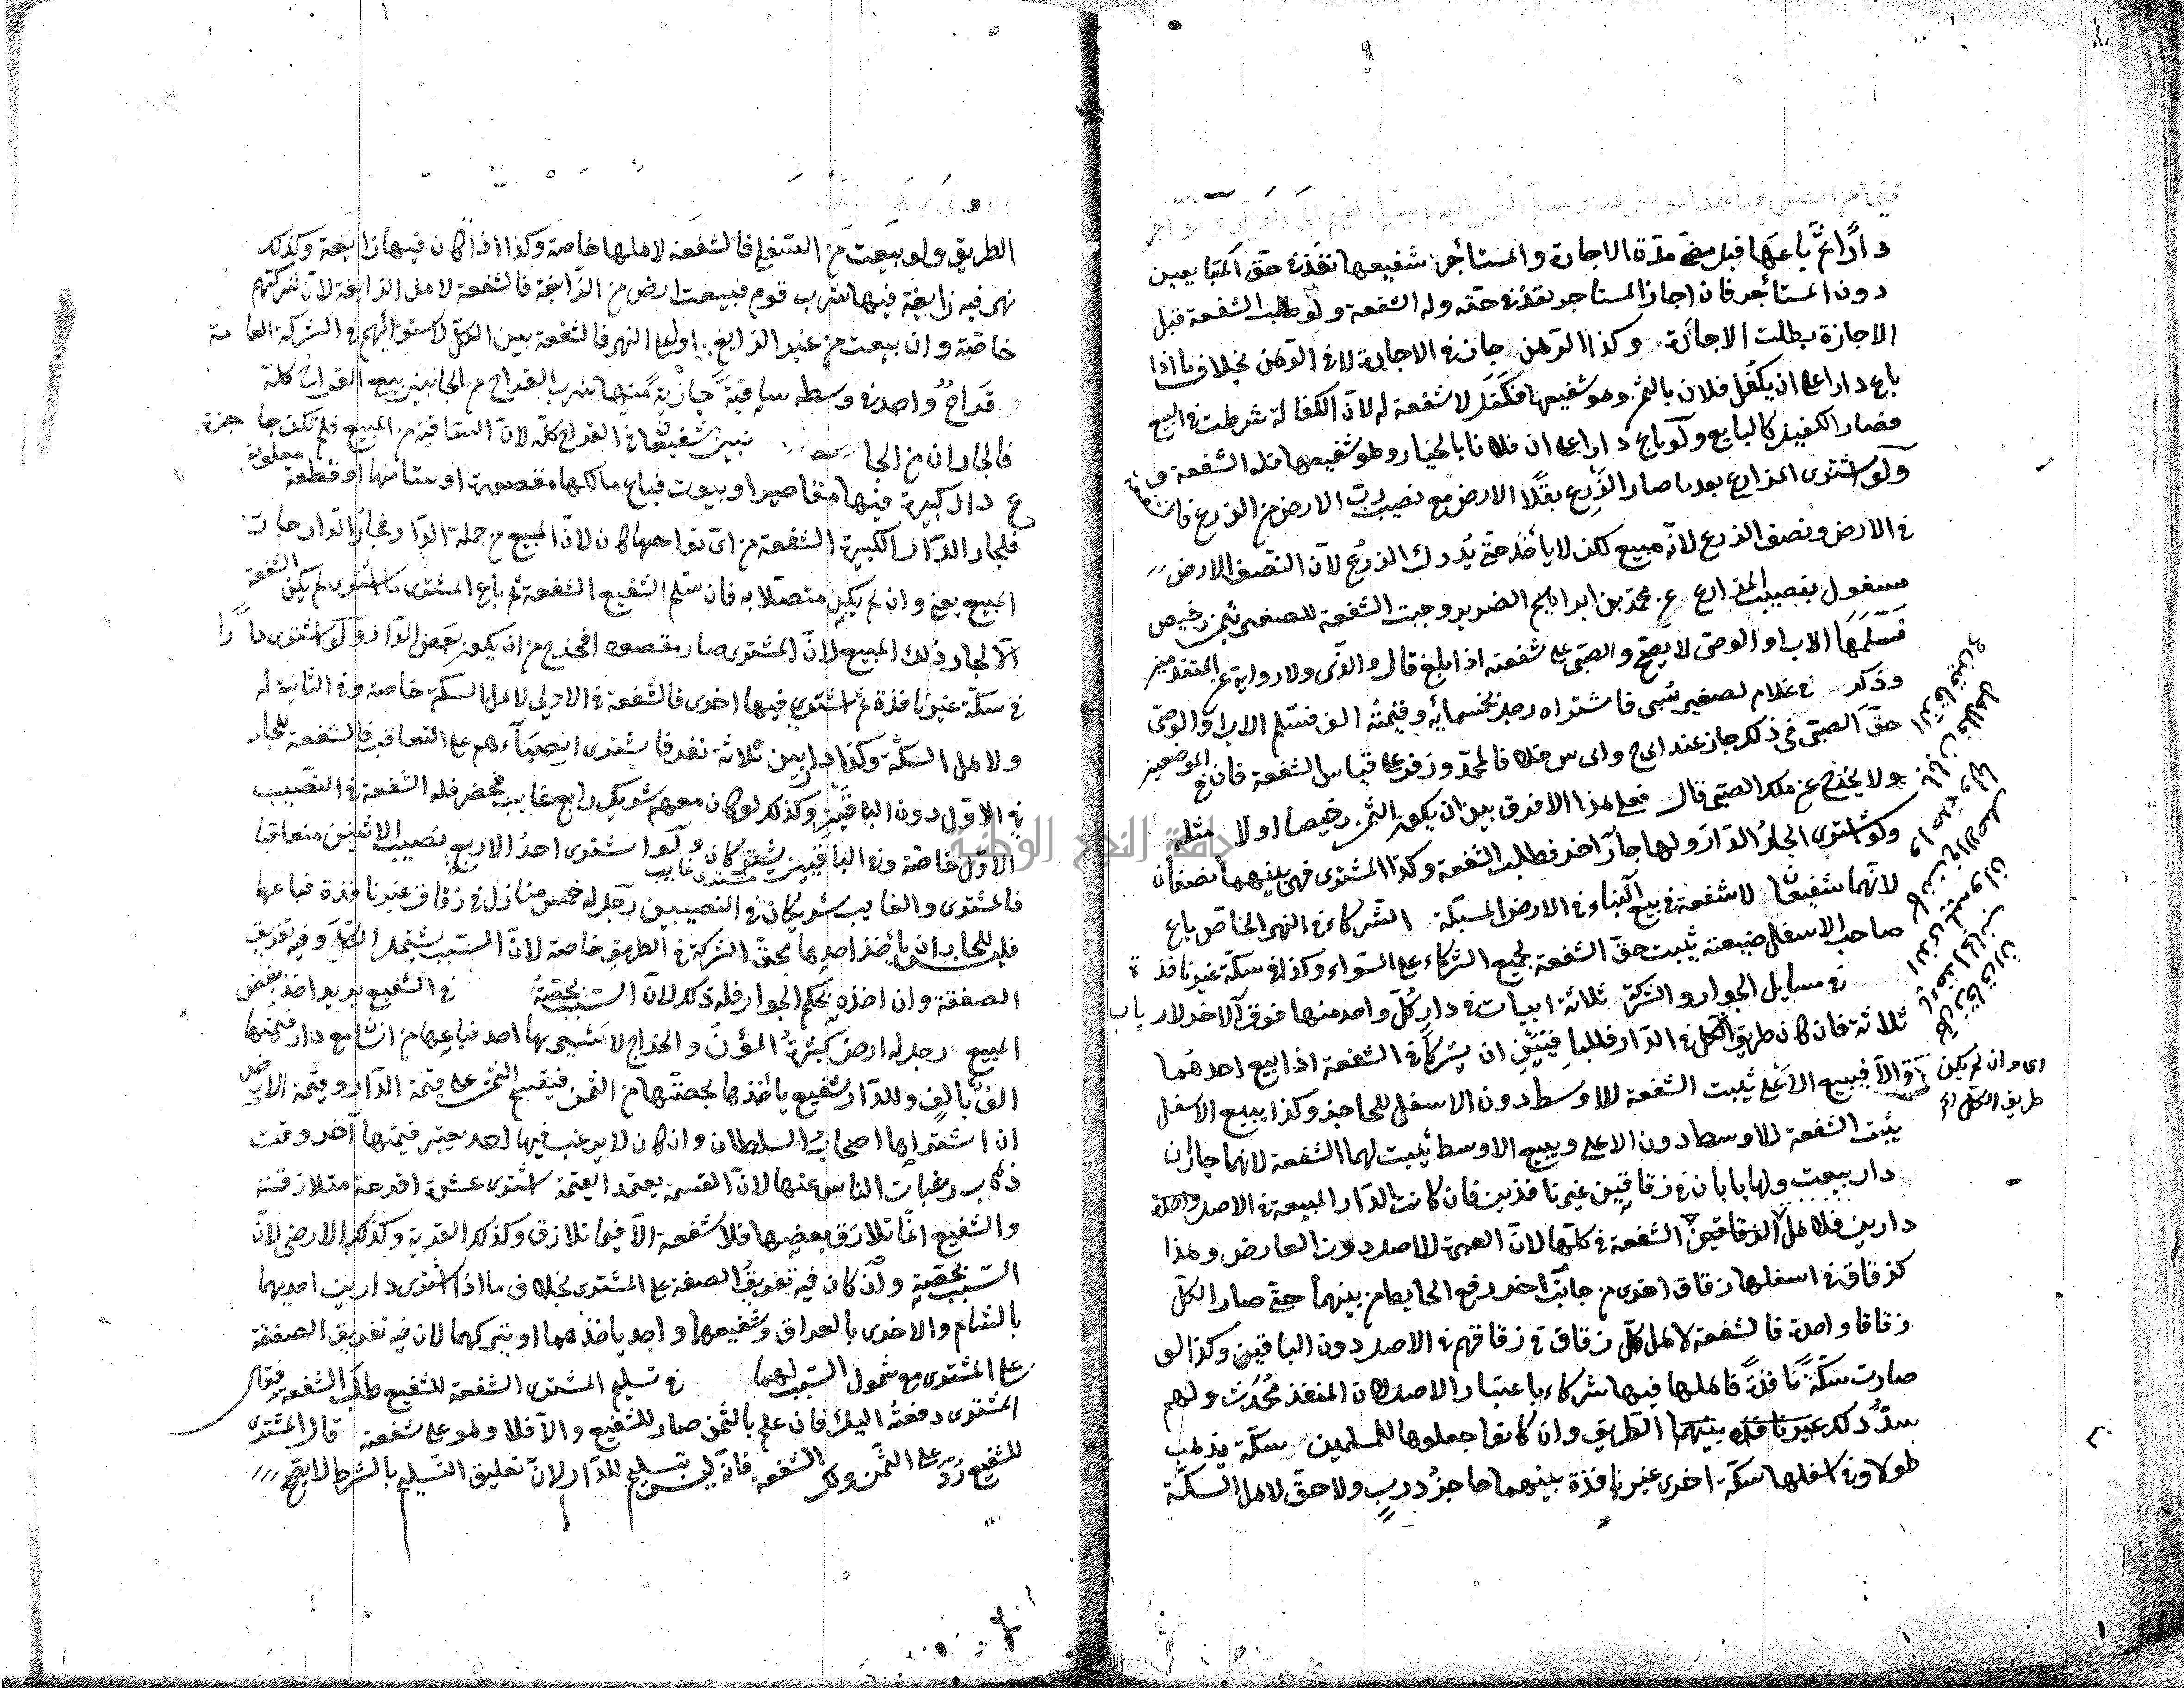 دارًا ثمّ باعها قبل مضيّ مدّة الاجارة والمستأجر شفيعها نفذ في حقّ المتبايعين
دون المستأجر فان اجاز المستاجر نفذ في حقه وله الشفعة ولو طلب الشفعة قبل
الاجازة بطلت الاجارة وكذا الرهن جاز في الاجارة لا في الرهن بخلاف ما اذا
باع دارا على ان يكفل فلان بالثمن وهو شفيعها فكفل لا شفعة له لانّ الكفالة شرطت في البيع
فصار الكفيل كالبايع ولو باع دارا على ان فلانا بالخيار وهو شفيعها فله الشفعة
ولو اشترى المزارع بعد ما صار الزرع بقلًا الارض مع نصيب ربّ الارض من الزرع
في الارض ونصف الزرع لانّه مبيع لكن لا يأخذ حتّى يُدرك الزرعُ لانّ النصف الارض
مشغول بنصيب المزارع ع محمد بن ابراهيم الضرير وجبت الشفعة للصغير بثمن رخيص
فسلّمها الاب او الوصي لا يصحّ والصبي على شفعته اذا بلغ قال والذي ولا رواية عن المتقدمين
وذكر في غلام لصغير سُبي فاشتراه رجل بخمسمائة وقيمته الف فسلم الاب او الوصي
حقّ الصبي في ذلك جاز عند ابي ح وابي س خلافا لمحمّد وزفر على قياس الشفعة فان في الموضعين
ولا يخرج عن ملك الصبي قال فعلى هذا لا فرق بين ان يكون الثمن رخيصا اولا مثله
ولو اشترى الجارُ الدّار ولها جارٌ آخر فطلب الشفعة وكذا المشترى فهي بينهما نصفان
لانّهما شفيعان لا شفعة في بيع البناء في الارض المسبّلة الشركاء في النهر الخاصّ باع
صاحب الاسفل ضيعته يثبت حقّ الشفعة لجميع الشركاء على السواء وكذا في سكّة غير نافذة
في مسايل الجوار والشركة ثلاثة ابيات في دار كُلّ واحد منها فوق الآخر لارباب
ثلاثة فان كان طريق الكلّ في الدّار فللباقيَيْنِ ان يشتركا في الشفعة اذا بيع احدهُما
والّا فبيع الاعلى يثبت الشفعة للاوسط دون الاسفل للحاجز وكذا ببيع الاسفل
يثبت الشفعة للاوسط دون الاعلى وببيع الاوسط يثبت لهما الشفعة لانهما جاران
دار بيعت ولها بابان في زقاقين غير نافذين فان كانت الدّار المبيعة في الاصل
دارين فلاهل الزقاقين الشفعة في كلها لانّ العبرة للاصل دون العارض ولهذا
كزقاق في اسفلها زقاق اخرى من جانب آخر رفع الحايط من بينهما حتّى صار الكلّ
زقاقا واحدة فالشفعة لاهل كلّ زقاق في زقاقهم في الاصل دون الباقين وكذا لو
صارت سكّةً نافذةً فاهلها فيها شركاء باعتبار الاصل لان المنفذ مُحدَث ولهم
سدّ ذلك الطريق وان كانوا جعلوها للمسلمين سكّة يذهب
طولا وفي اسفلها سكّة اخرى غير نافذة بينهما حاجزُ دربٍ ولا حقّ لاهل السكّة
وان لم يكن
طريق الكل
الطريق ولو بيعت من السفلى فالشفعة لاهلها خاصة وكذا اذا كان فيها زايغة وكذلك
نهر فيه زايغة فيها شرب قوم فبيعت ارض من الزايغة فالشفعة لاهل الزايغة لانّ شركتهم
خاصّة وان بيعت من عند الزايغ اولى على النهر فالشفعة بين الكلّ لاستوائهم في الشركة العامة
قراحٌ واحد في وسطه ساقيةٌ جاريةٌ منها شرب القراح من الجانبين بيع القراح كله
فالجاران من الجا نبين شفيعان في القراح كله لانّ الساقية من المبيع فلم تكن حاجزة
ع دار كبيرة فيها مقاصير او بيوت فباع مالكها مقصورة او بيتا منها او قطعة معلومة
فلجار الدّار الكبيرة الشفعة من ايّ نواحيها كان لانّ المبيع من جملة الدّار فجارُ الدّار جارُ
المبيع يعني وان لم يكن متصلا به فان سلّم الشفيع الشفعة ثم باع المشترى ما اشترى لم يكن الشفعة
الّا لجار ذلك المبيع لانّ المشترى صار مقصودا فخرج من ان يكون بعض الدّار ولو اشترى دارًا
في سكّة غير نافذة ثمّ اشترى فيها اخرى فالشفعة في الاولى لاهل السكّة خاصة وفي الثانية له
ولاهل السكّة وكذا دار بين ثلاثة نفر فاشترى انصباءهم على التعاقب فالشفعة للجار
في الاوّل دون الباقيَين وكذلك لو كان معهم شريك رابع غايب فحضر فله الشفعة في النصيب
الاوّل خاصّة وفي الباقيين يشتركان ولو اشترى احدُ الاربع نصيب الاثنين متعاقبا
فالمشترى والغايب شريكان في النصيبين رجل له خمس منازل في زقاق غير نافذة فباعها
فليس للجار ان يأخذ احدها بحقّ الشركة في الطريق خاصة لانّ السبب يشمل الكلّ وفيه تفريق
الصفقة وان اخذه بحكم الجوار فله ذلك لانّ السبب يخصّهُ في الشفيع يريد اخذ بعض
المبيع رجل له ارض كثيرةُ المؤن والخراج لا يشتريها احد فباعها من انسا مع دار قيمتها
الف بالفٍ وللدار شفيع يأخذها بحصّتها من الثمن فيقسم الثمن على قيمة الدّار وقيمة الارض
ان اشتراها اصحابُ السلطان وان كان لا يرغب فيها احد يعتبر قيمتها آخر وقت
ذهاب رغبات الناس عنها لانّ القسمة يعتمد القيمة اشترى عشرة اقرحة متلازقة
والشفيع انّما تلازق بعضها فلا شفعة الّا فيما تلازق وكذلك القرية وكذلك الارضى لانّ
السبب يخصّه وان كان فيه تفريق الصفقة على المشترى بخلاف ما اذا اشترى دارين احديهما
بالشام والاخرى بالعراق وشفيعهما واحد ياخذهما او يتركهما لان فيه تفريق الصفقة
على المشترى مع شمول السبب لهما في تسليم المشترى الشفعة للشفيع طلب الشفعة فقال
المشترى دفعتُه اليك فان علم بالثمن صار للشفيع والّا فلا وهو على شفعته قال المشترى
للشفيع رُدّ علىّ الثّمن ولك الشفعة فانّه ليس بتسليم للدّار لانّ تعليق التسليم بالشرط لا يصحّ
جامعة النجاح الوطنية